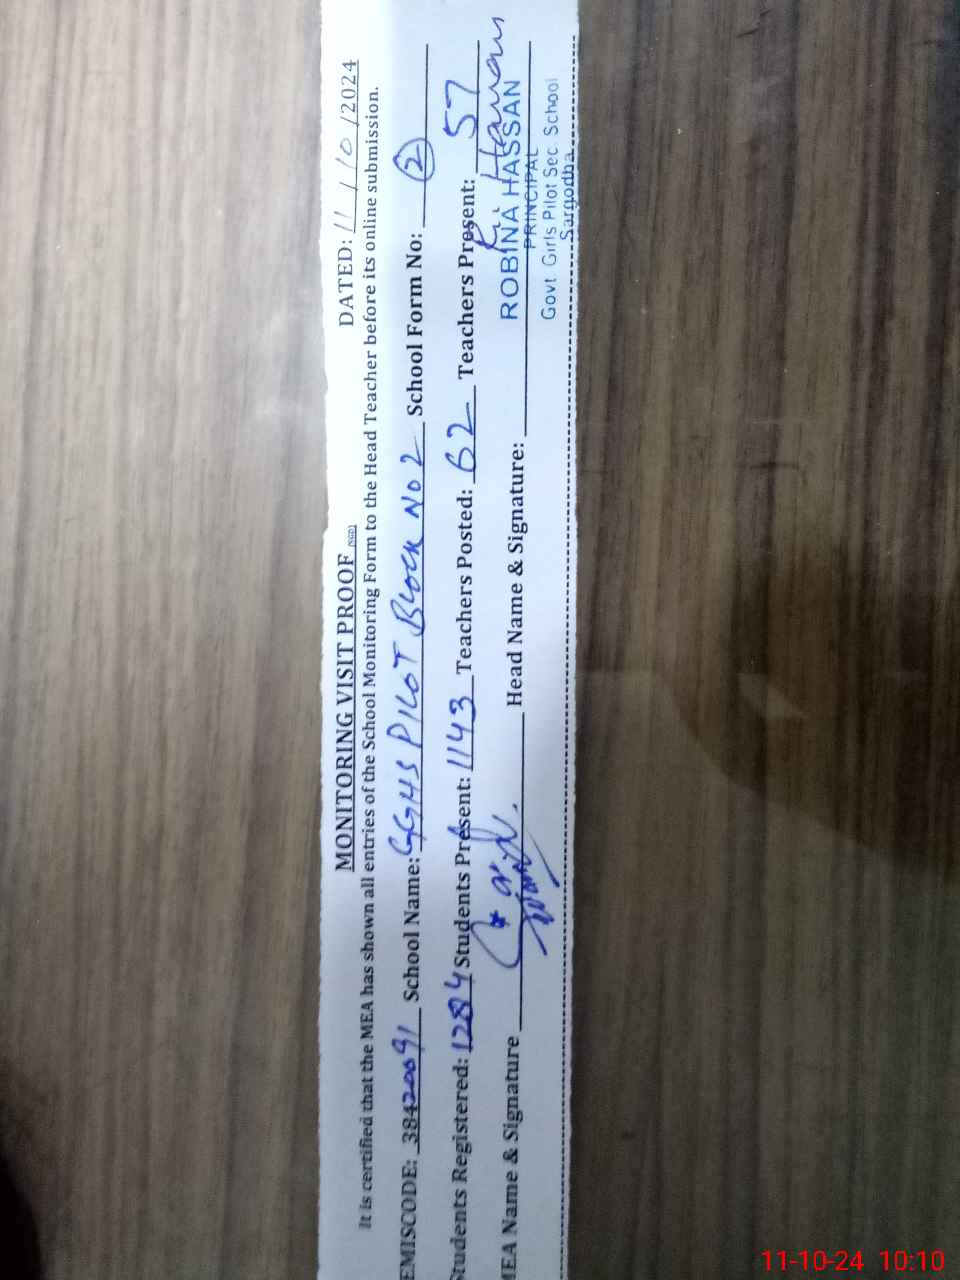 MONITORING VISIT PROOF (SSGD) DATED: 11 / 10 /2024
It is certified that the MEA has shown all entries of the School Monitoring Form to the Head Teacher before its online submission.
EMISCODE: 38420091 School Name: GGHS PILOT Block No 2 School Form No: 2
Students Registered: 1284 Students Present: 1143 Teachers Posted: 62 Teachers Present: 57
MEA Name & Signature Head Name & Signature:
ROBINA HASSAN
PRINCIPAL
Govt. Girls Pilot Sec. School
Sargodha
11-10-24 10:10